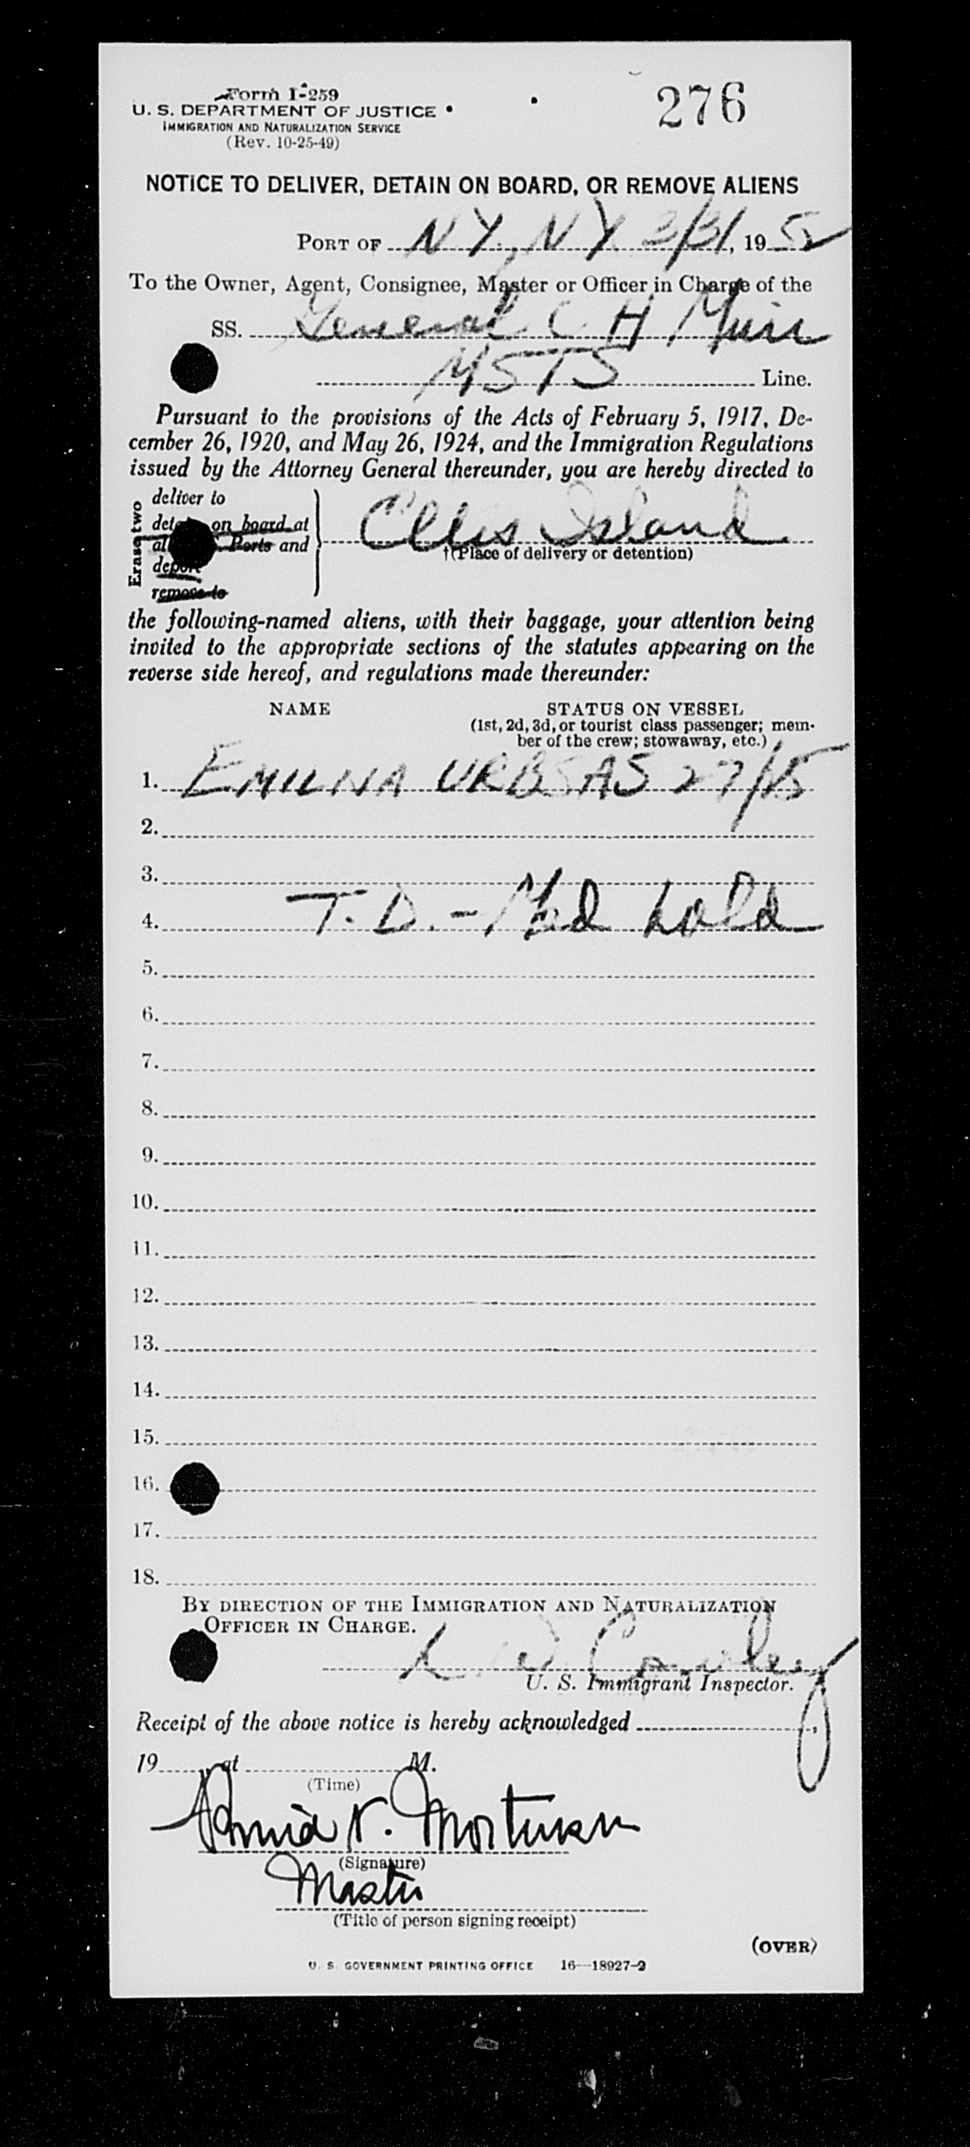 Form I-259
U. S. DEPARTMENT OF JUSTICE
IMMIGRATION AND NATURALIZATION SERVICE
(Rev. 10-25-49)
276
NOTICE TO DELIVER, DETAIN ON BOARD, OR REMOVE ALIENS
PORT OF NY, NY 3/31, 1952
To the Owner, Agent, Consignee, Master or Officer in Charge of the
SS. General C H Muir
MSTS Line.
Pursuant to the provisions of the Acts of February 5, 1917, De-
cember 26, 1920, and May 26, 1924, and the Immigration Regulations
issued by the Attorney General thereunder, you are hereby directed to
Erase two
deliver to
on board at
Ports and
deport
remove to
Ellis Island
†(Place of delivery or detention)
the following-named aliens, with their baggage, your attention being
invited to the appropriate sections of the statutes appearing on the
reverse side hereof, and regulations made thereunder:
NAME STATUS ON VESSEL
(1st, 2d, 3d, or tourist class passenger; mem-
ber of the crew; stowaway, etc.)
1. EMILINA URBSAS 27/15
2.
3.
4. T. D. - Med hold
5.
6.
7.
8.
9.
10.
11.
12.
13.
14.
15.
16.
17.
18.
BY DIRECTION OF THE IMMIGRATION AND NATURALIZATION
OFFICER IN CHARGE.
U. S. Immigrant Inspector.
Receipt of the above notice is hereby acknowledged
19 , at M.
(Time)
N. Mortensen
(Signature)
Master
(Title of person signing receipt)
(OVER)
U. S. GOVERNMENT PRINTING OFFICE 16—18927-2